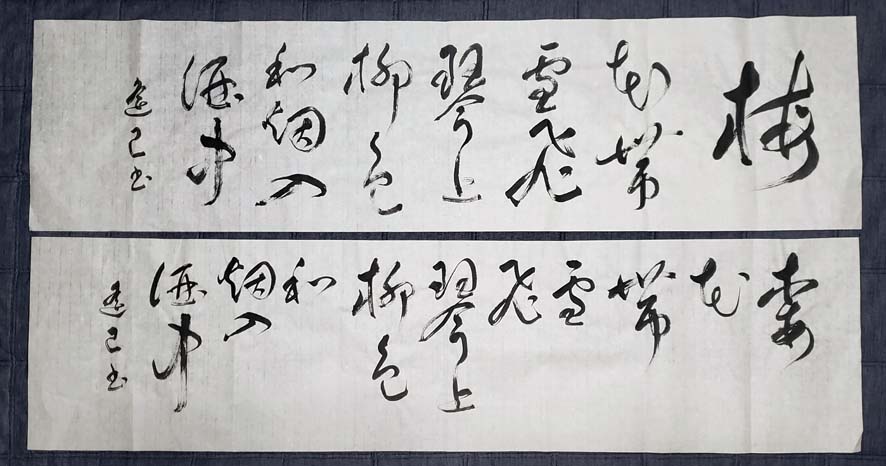 梅
花帶
雪飛
琴上
柳色
和烟入
酒中
己书
梅
花
帶
雪
飛
琴上
柳色
和
烟入
酒中
己书